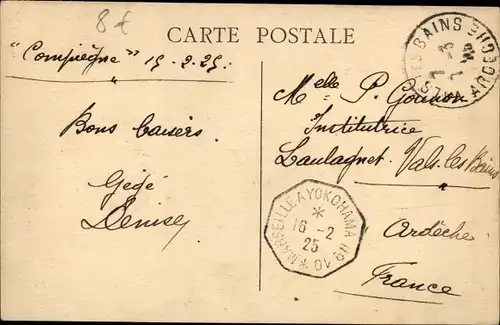 8 €
CARTE POSTALE
"Compiègne" 15-2-25.
Bons baisers.
Gégé
Denise
Melle P.
Institutrice
Laulagnet. Vals-les-Bains
Ardèche.
France
LES BAINS ARDECHE
MARSEILLE A YOKOHAMA Nº 10
*
16-2
25